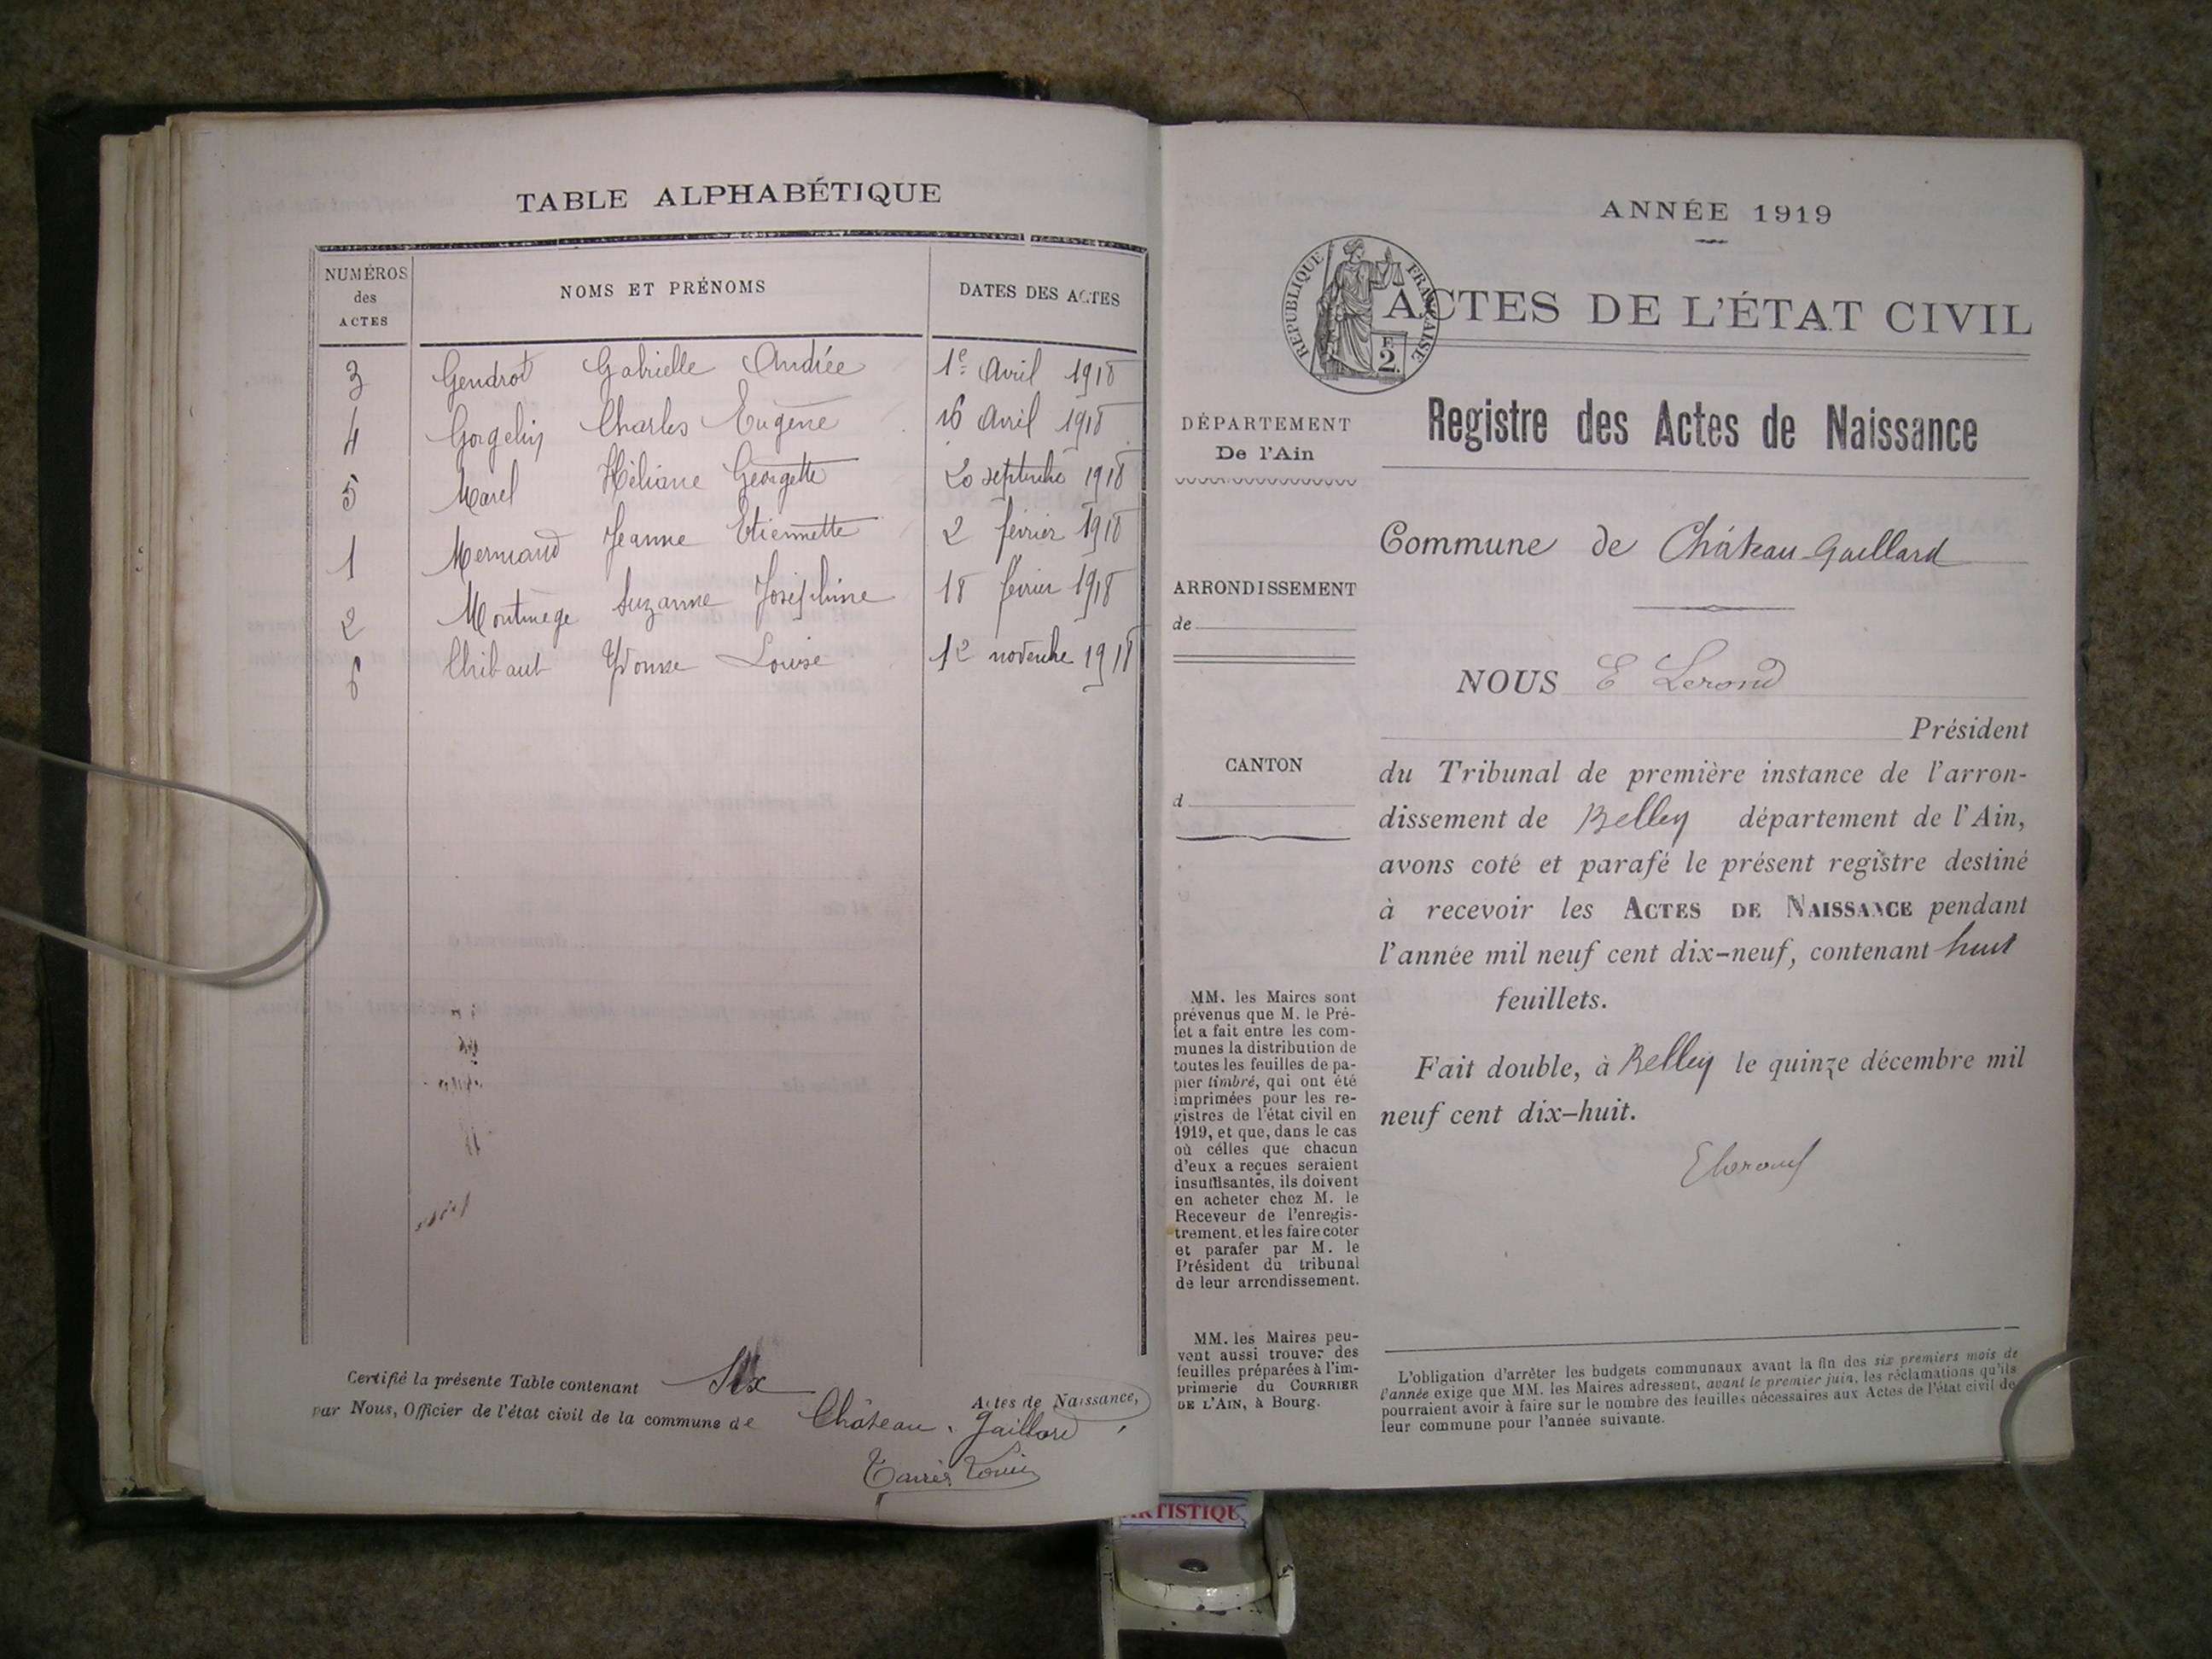 TABLE ALPHABÉTIQUE
NUMÉROS
des
ACTES
NOMS ET PRÉNOMS
DATES DES ACTES
3 Gendrot Gabrielle Andrée 1e Avril 1918
4 Charles Eugène 16 Avril 1918
5 Marel Héliane Georgette 20 septembre 1918
1 Mermand Jeanne Etiennette 2 février 1918
2 Suzanne Joséphine 18 février 1918
6 Thibaut Yvonne Louise 12 novembre 1918
Certifié la présente Table contenant Six Actes de Naissance,
par Nous, Officier de l'état civil de la commune de Château-Gaillard
Louis
ANNÉE 1919
RÉPUBLIQUE FRANÇAISE
F
2.
ACTES DE L'ÉTAT CIVIL
Registre des Actes de Naissance
DÉPARTEMENT
De l'Ain
ARRONDISSEMENT
de
CANTON
d
MM. les Maires sont
prévenus que M. le Pré-
fet a fait entre les com-
munes la distribution de
toutes les feuilles de pa-
pier timbré, qui ont été
imprimées pour les re-
gistres de l'état civil en
1919, et que, dans le cas
où celles que chacun
d'eux a reçues seraient
insuffisantes, ils doivent
en acheter chez M. le
Receveur de l'enregis-
trement, et les faire coter
et parafer par M. le
Président du tribunal
de leur arrondissement.
MM. les Maires peu-
vent aussi trouver des
feuilles préparées à l'im-
primerie du COURRIER
DE L'AIN, à Bourg.
Commune de Château-Gaillard
NOUS E Lerond
Président
du Tribunal de première instance de l'arron-
dissement de Belley département de l'Ain,
avons coté et parafé le présent registre destiné
à recevoir les ACTES DE NAISSANCE pendant
l'année mil neuf cent dix-neuf, contenant huit
feuillets.
Fait double, à Belley le quinze décembre mil
neuf cent dix-huit.
E Lerond
L'obligation d'arrêter les budgets communaux avant la fin des six premiers mois de
l'année exige que MM. les Maires adressent, avant le premier juin, les réclamations qu'ils
pourraient avoir à faire sur le nombre des feuilles nécessaires aux Actes de l'état civil de
leur commune pour l'année suivante.
ARTISTIQU